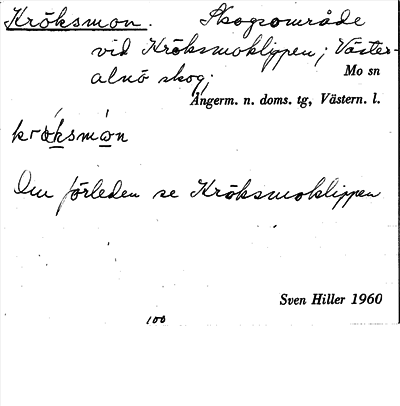 Kröksmon. Skogsområde
vid Kröksmoklippen; Väster-
alnö skog;
Mo sn
Ångerm. n. doms. tg, Västern. l.
krøksmon
Om förleden se Kröksmoklippen
Sven Hiller 1960
100